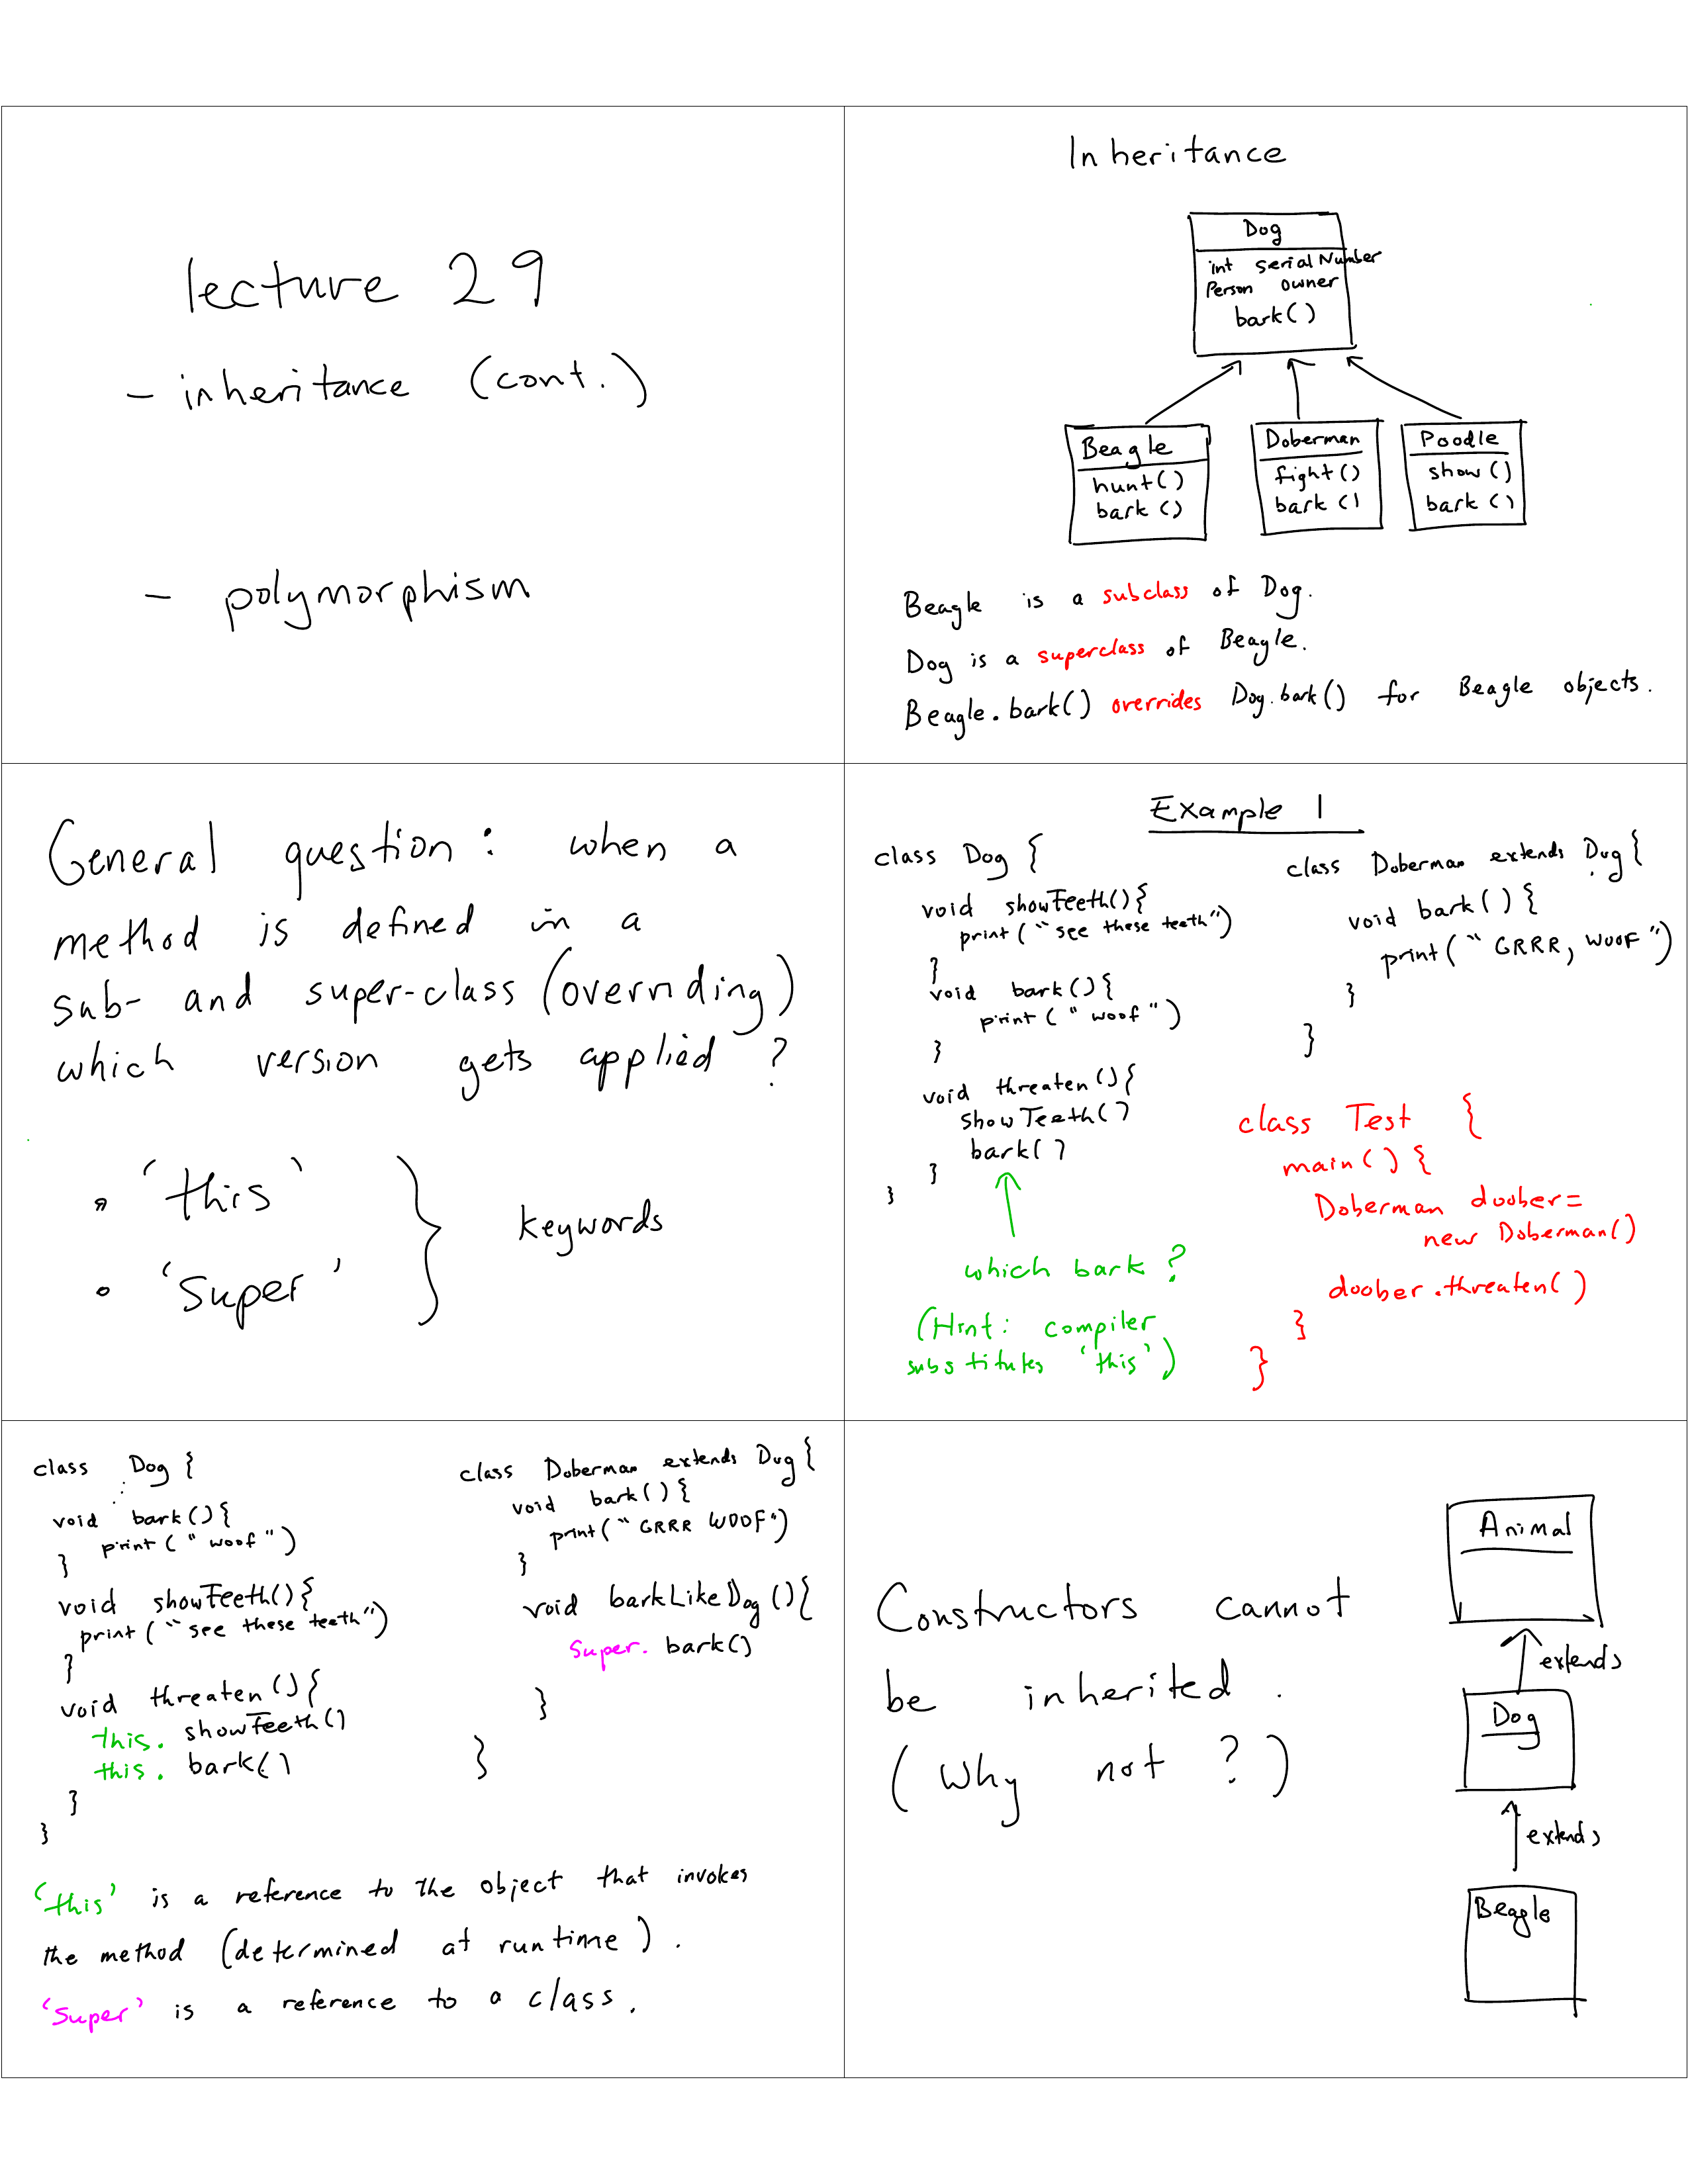 lecture 29
- inheritance (cont.)
- polymorphism
Inheritance
Dog
int serialNumber
Person owner
bark()
Beagle
hunt()
bark()
Doberman
fight()
bark()
Poodle
show()
bark()
Beagle is a subclass of Dog.
Dog is a superclass of Beagle.
Beagle.bark() overrides Dog.bark() for Beagle objects.
General question: when a
method is defined in a
sub- and super-class (overriding)
which version gets applied ?
• 'this'
• 'super'
} keywords
Example 1
class Dog {
void showTeeth(){
print("see these teeth")
}
void bark(){
print("woof")
}
void threaten(){
showTeeth()
bark()
}
}
which bark ?
(Hint: compiler
substitutes 'this')
class Doberman extends Dog {
void bark() {
print("GRRR, WOOF")
}
}
class Test {
main() {
Doberman doober =
new Doberman()
doober.threaten()
}
}
class Dog {
⋮
void bark(){
print("woof")
}
void showTeeth(){
print("see these teeth")
}
void threaten(){
this. showTeeth()
this. bark()
}
}
class Doberman extends Dog {
void bark(){
print("GRRR WOOF")
}
void barkLikeDog(){
super. bark()
}
}
'this' is a reference to the object that invokes
the method (determined at runtime).
'super' is a reference to a class.
Constructors cannot
be inherited.
(Why not ?)
Animal
extends
Dog
extends
Beagle